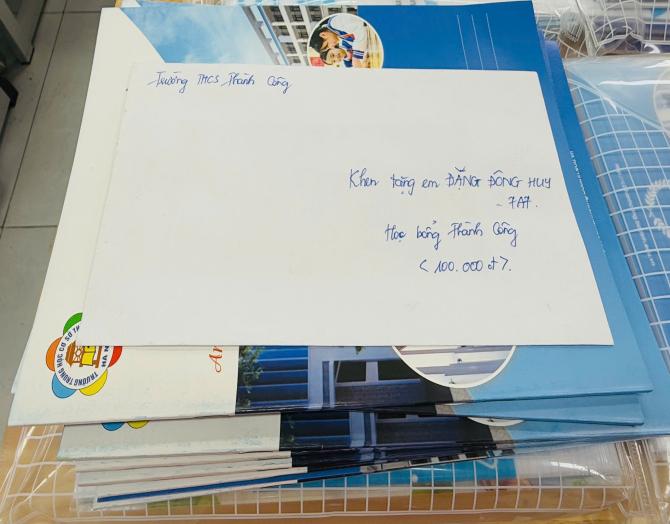 Trường THCS Thành Công
Khen tặng em ĐẶNG ĐÔNG HUY
- 7A7.
Học bổng Thành Công
< 100.000 đ >.
TRƯỜNG TRUNG HỌC CƠ SỞ
HÀ N
An